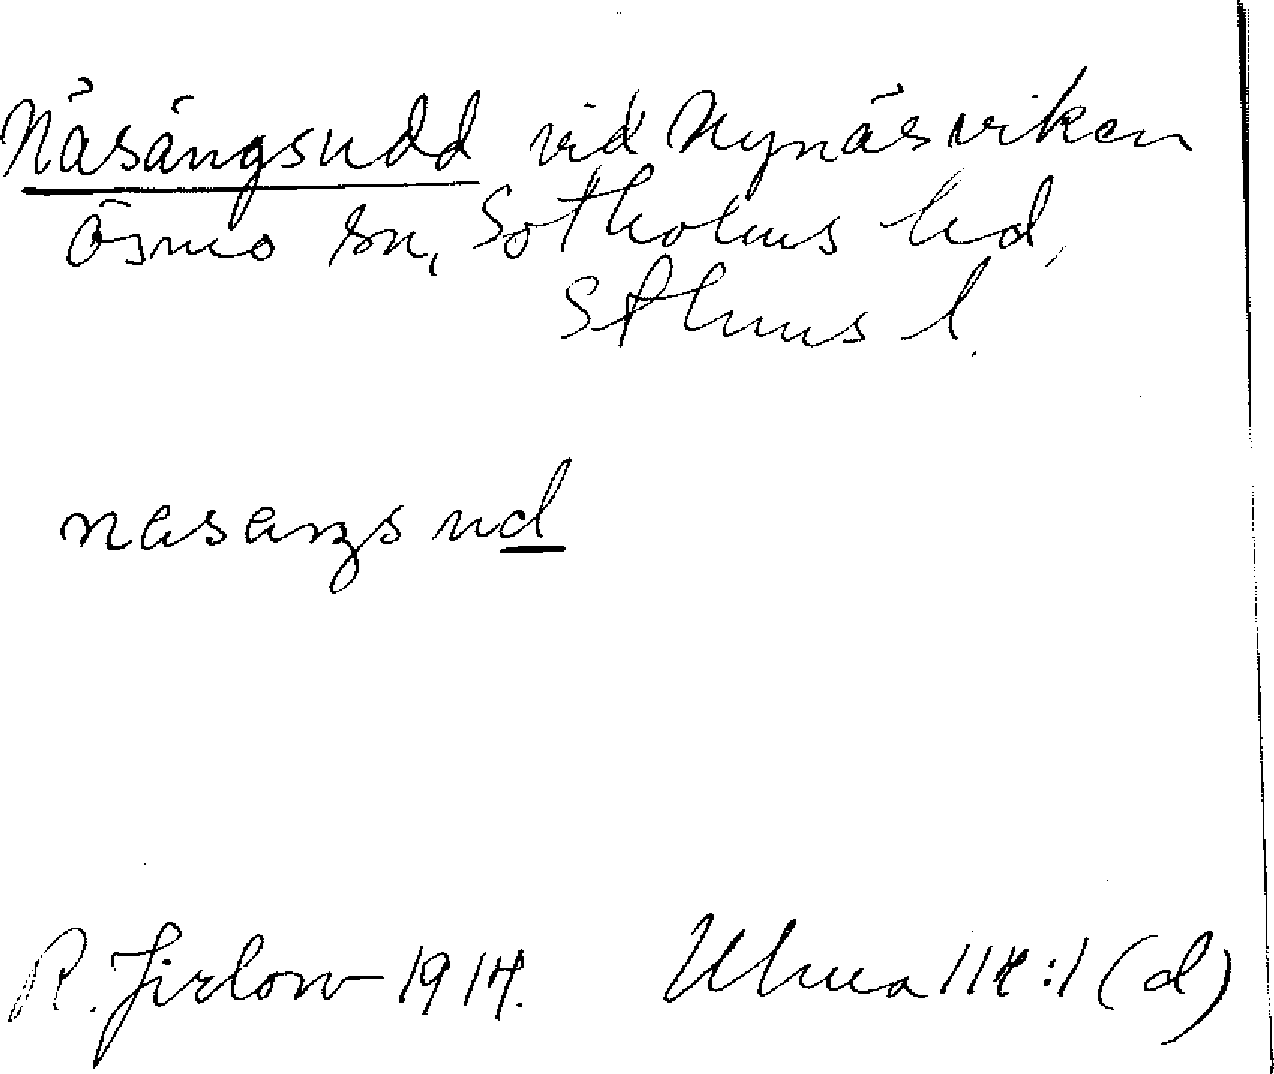 Näsängsudd vid Nynäsviken
Ösmo sn, Sotholms hd,
Sthms l.
næsæŋs ud
R. Jirlow 1914. Uhrea 114:1 (d)